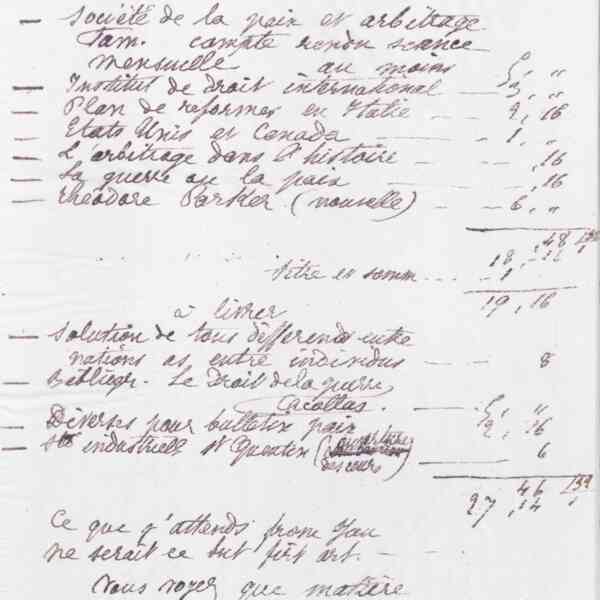 — Société de la paix et arbitrage
Tam. compte rendu séance
mensuelle au moins 5, „
— Institut de droit international — 3, „
— Plan de reformes en Italie — 2, 16
— Etats Unis et Canada — 1, „
— L'arbitrage dans l'histoire — ,16
— La guerre ou la paix — ,16
— Théodore Parker (nouvelle) — 6, „
48
18,
Titre et somm — 1
19, 16
à livrer
— Solution de tous différends entre
nations as entre individus — 8
— Bibliogr. Le Droit de la guerre
Acollas. — 5, „
— Diverses pour bulletin paix 2, 16
— Sté industrielle St Quentin (discours) — 6
46
27, 14
Ce que j'attends from you
ne serait ce but first art. —
Vous voyez que matière